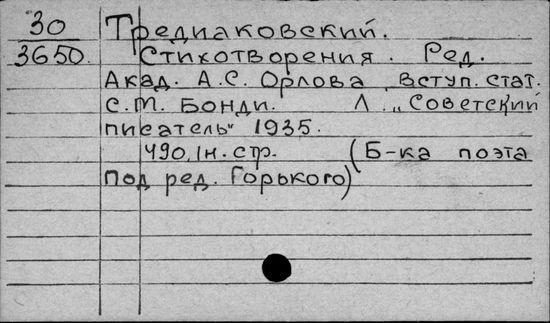 30 Тредиаковский.
3650. Стихотворения. Ред.
Акад. А.С. Орлова, вступ. стат.
С.М. Бонди. Л. „Советский
писатель" 1935.
490, 1н. стр. (Б-ка поэта
под ред. Горького)